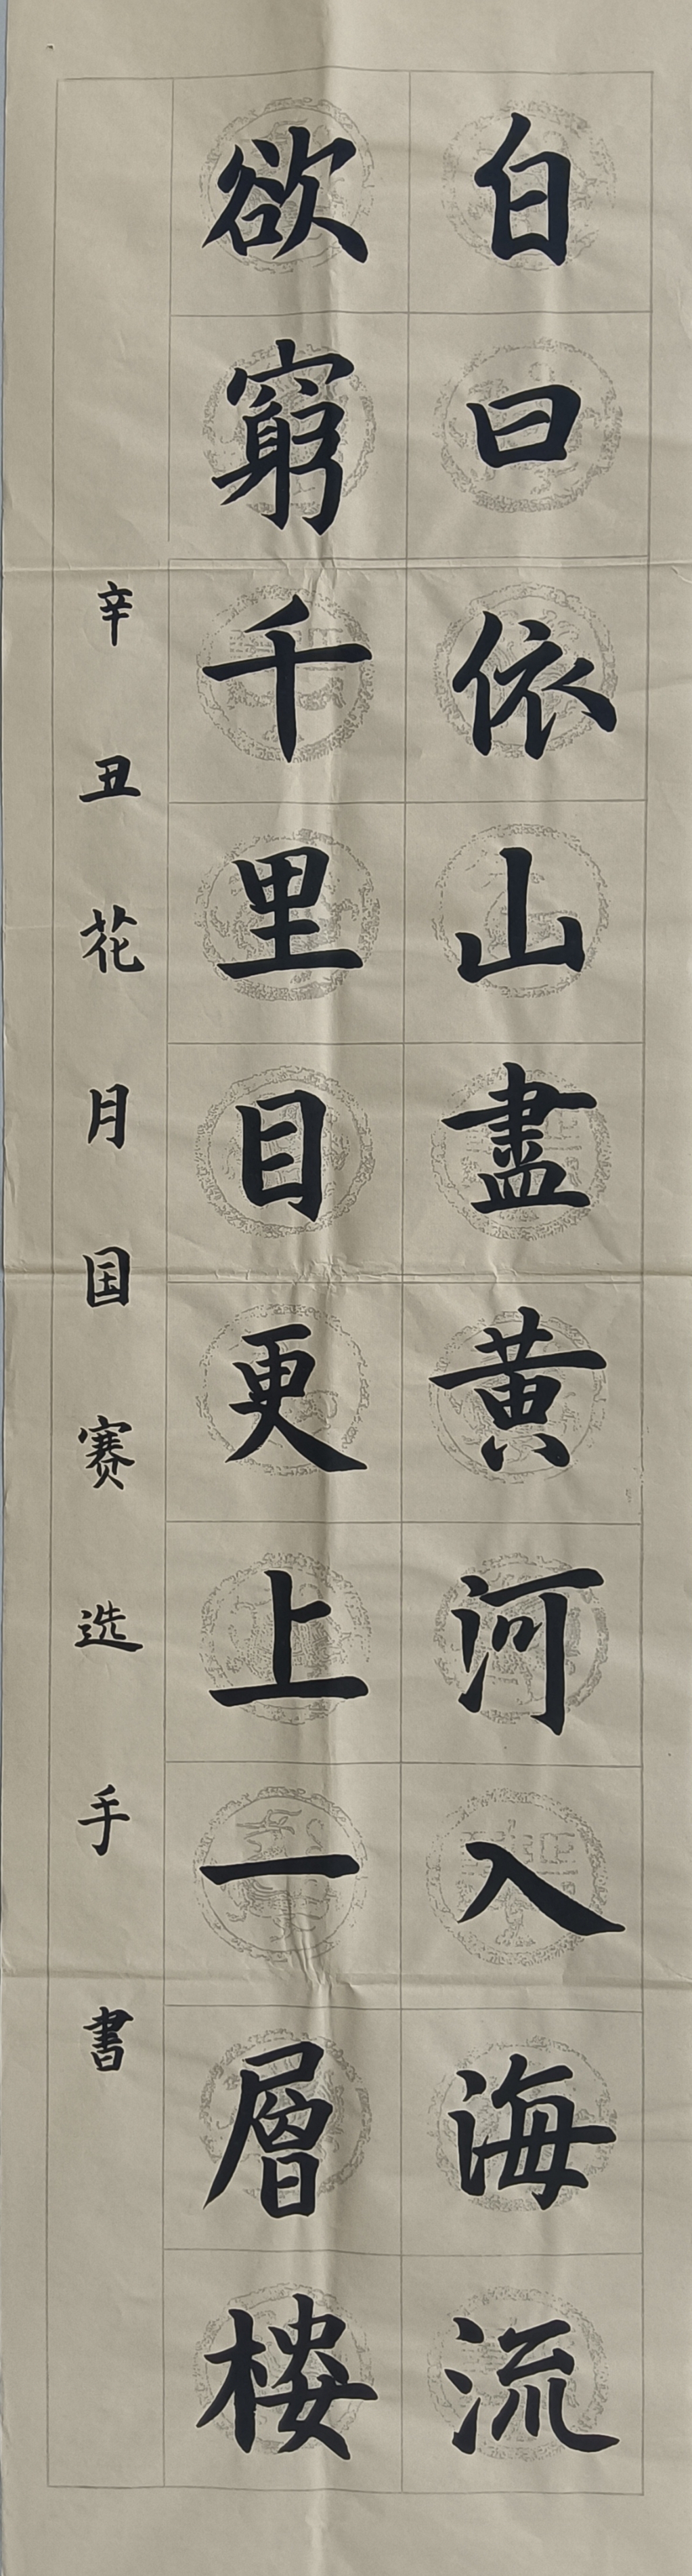 白日依山盡黄河入海流
欲窮千里目更上一層楼
辛丑花月国赛选手書